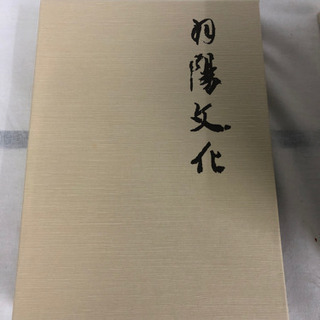 羽陽文化